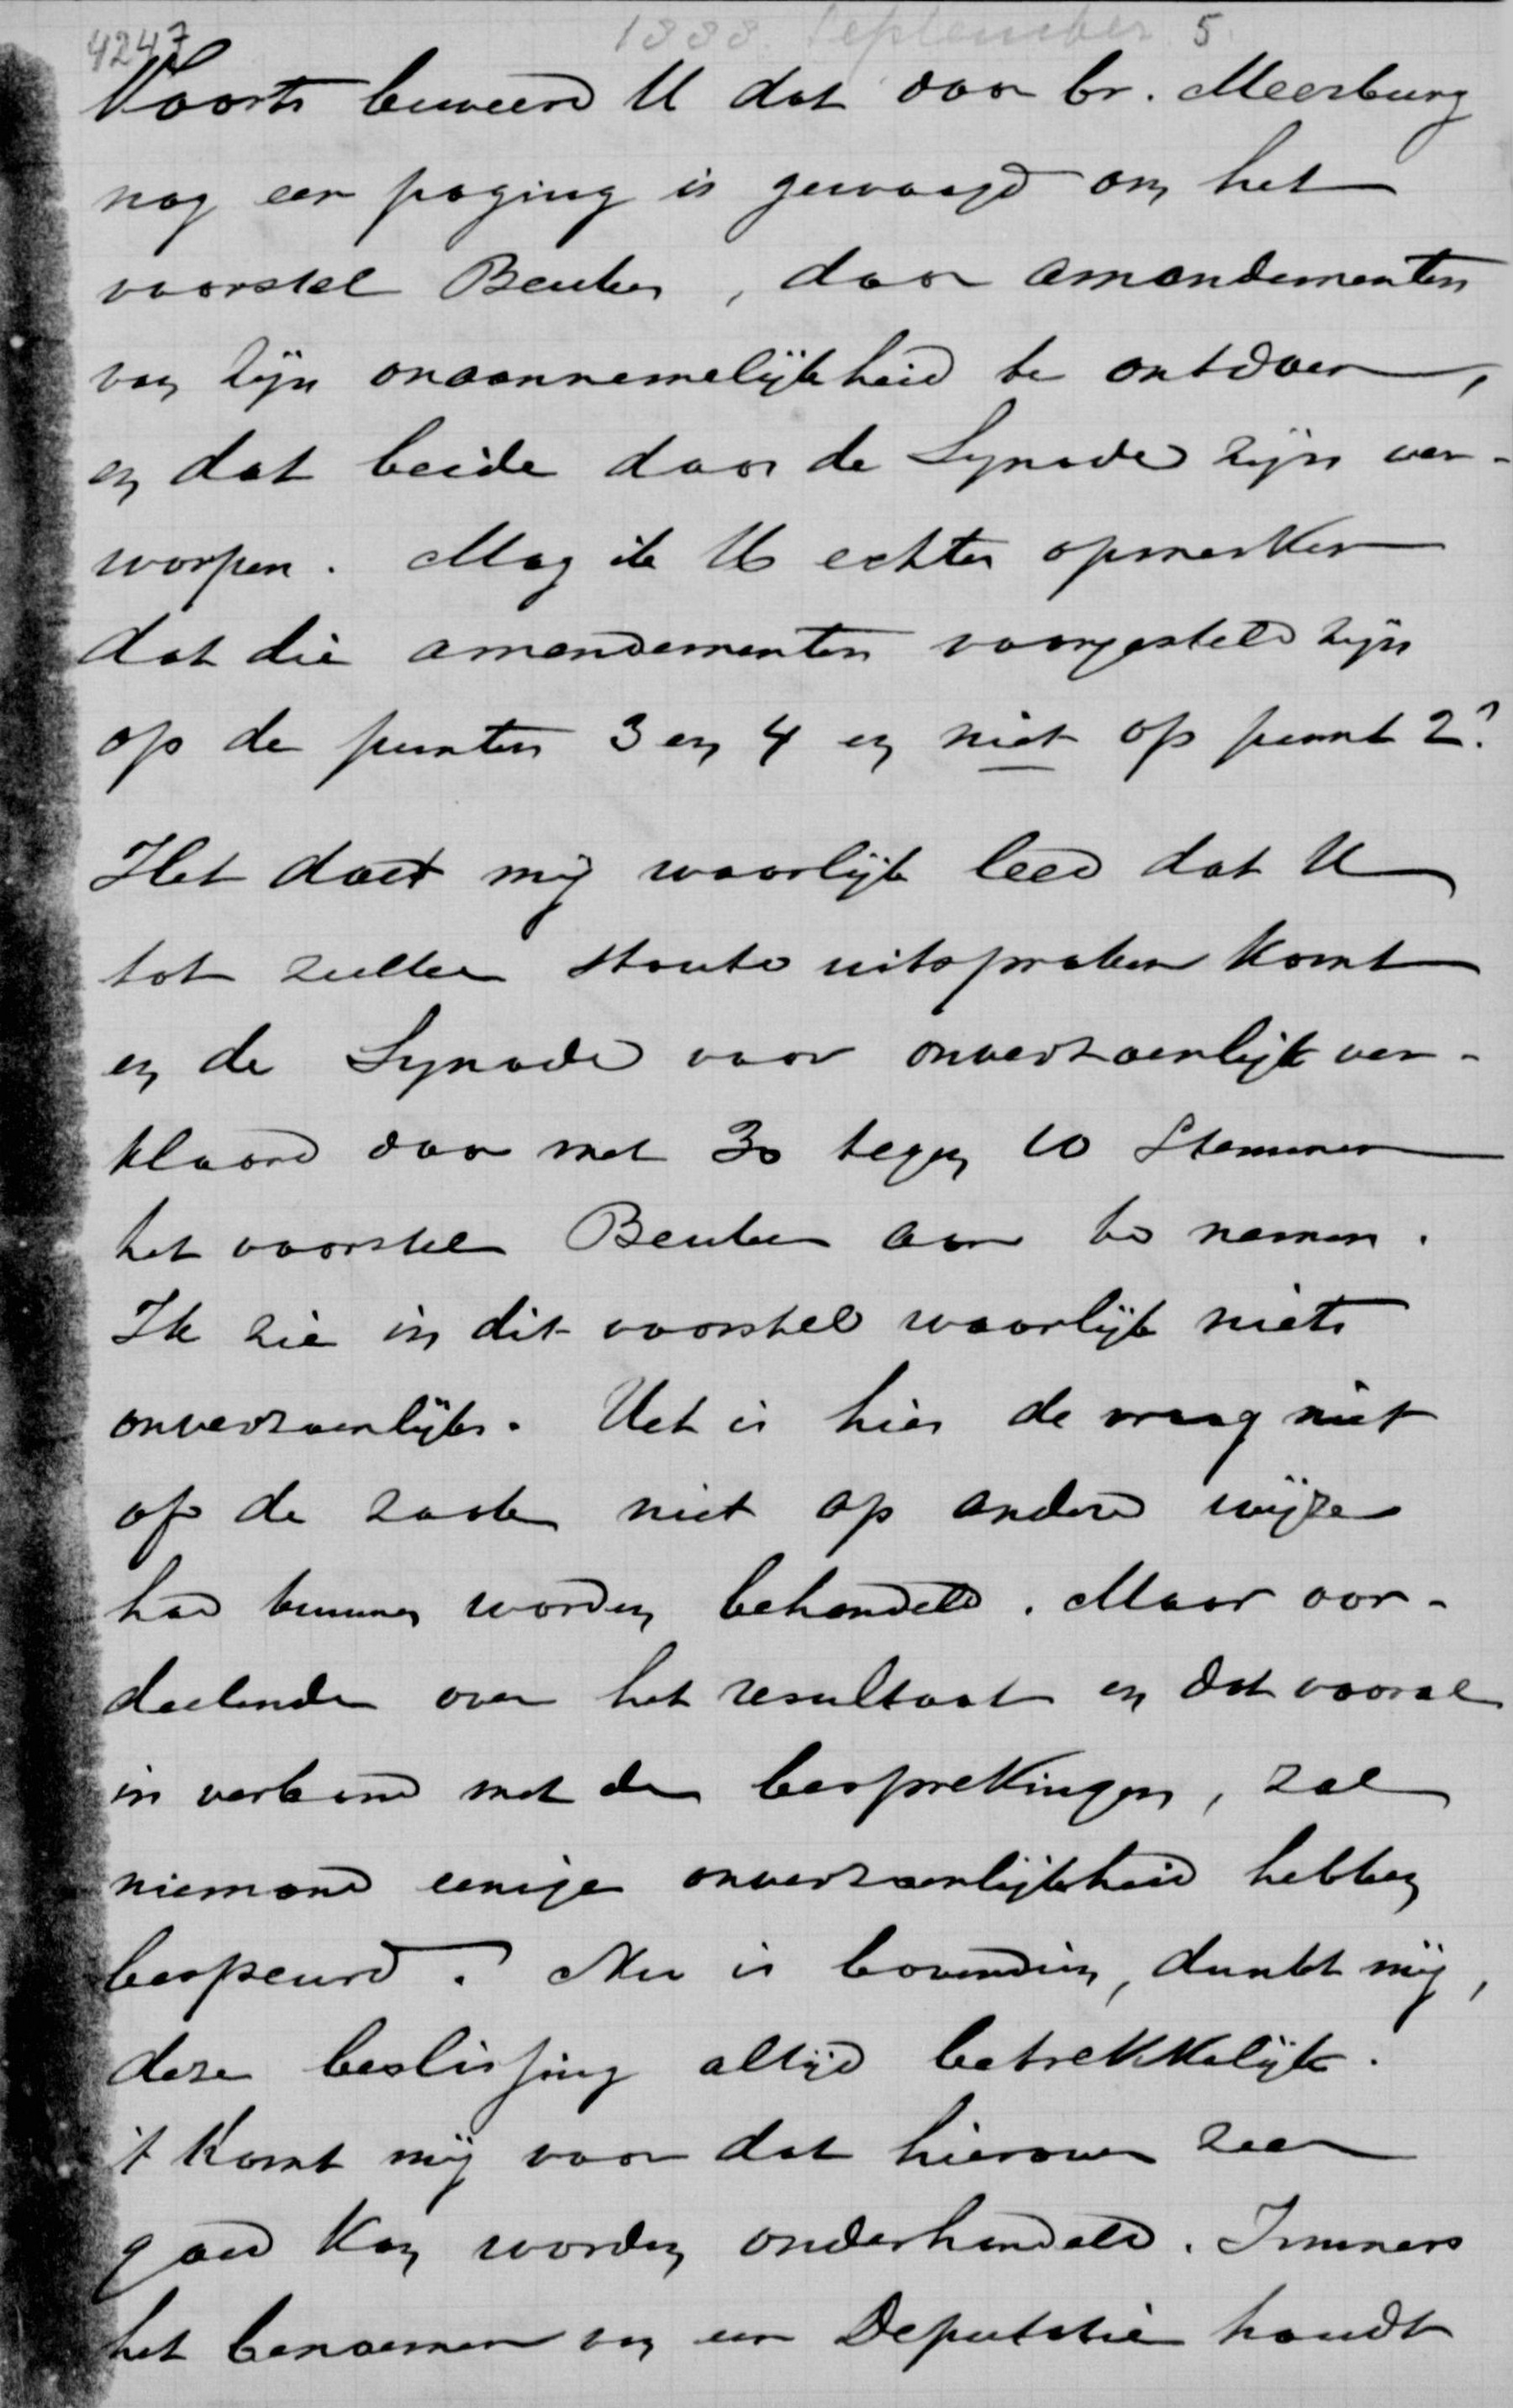 4247 1888 September 5.
Voorts beweerd U dat door br. Meerburg
nog een poging is gewaagd om het
voorstel Beuker, door amendementen
van zijn onaannemelijkheid te ontdoen,
en dat beide door de Synode zijn ver-
worpen. Mag ik U echter opmerken
dat die amendementen voorgesteld zijn
op de punten 3 en 4 en niet op punt 2?
Het doet mij waarlijk leed dat U
tot zulke stoute uitspraken komt
en de Synode voor onverzoenlijk ver-
klaard door met 30 tegen 10 stemmen
het voorstel Beuker aan te nemen.
Ik zie in dit voorstel waarlijk niets
onverzoenlijks. Het is hier de vraag niet
of de zaak niet op andere wijze
had kunnen worden behandeld. Maar oor-
deelende over het resultaat en dat vooral
in verband met de besprekingen, zal
niemand eenige onverzoenlijkheid hebben
bespeurd. Nu is bovendien, dunkt mij,
deze beslissing altijd betrekkelijk.
't Komt mij voor dat hierover zeer
goed kan worden onderhandeld. Immers
het benoemen van een Deputatie houdt